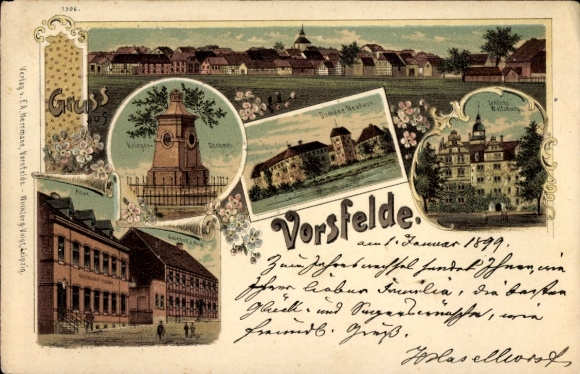 1306.
Verlag v. F.A. Herrmann, Vorsfelde. - Winkler & Voigt, Leipzig.
Gruss
aus
Krieger-Denkmal
Domäne Neuhaus.
Schloss
Wolfsburg.
Post
Vorsfelde.
am 1. Januar 1899.
Zum Jahreswechsel sendet Ihnen, wie
Ihrer lieben Familie, die besten
Glück- und Segenswünsche, wie
freundl. Gruß.